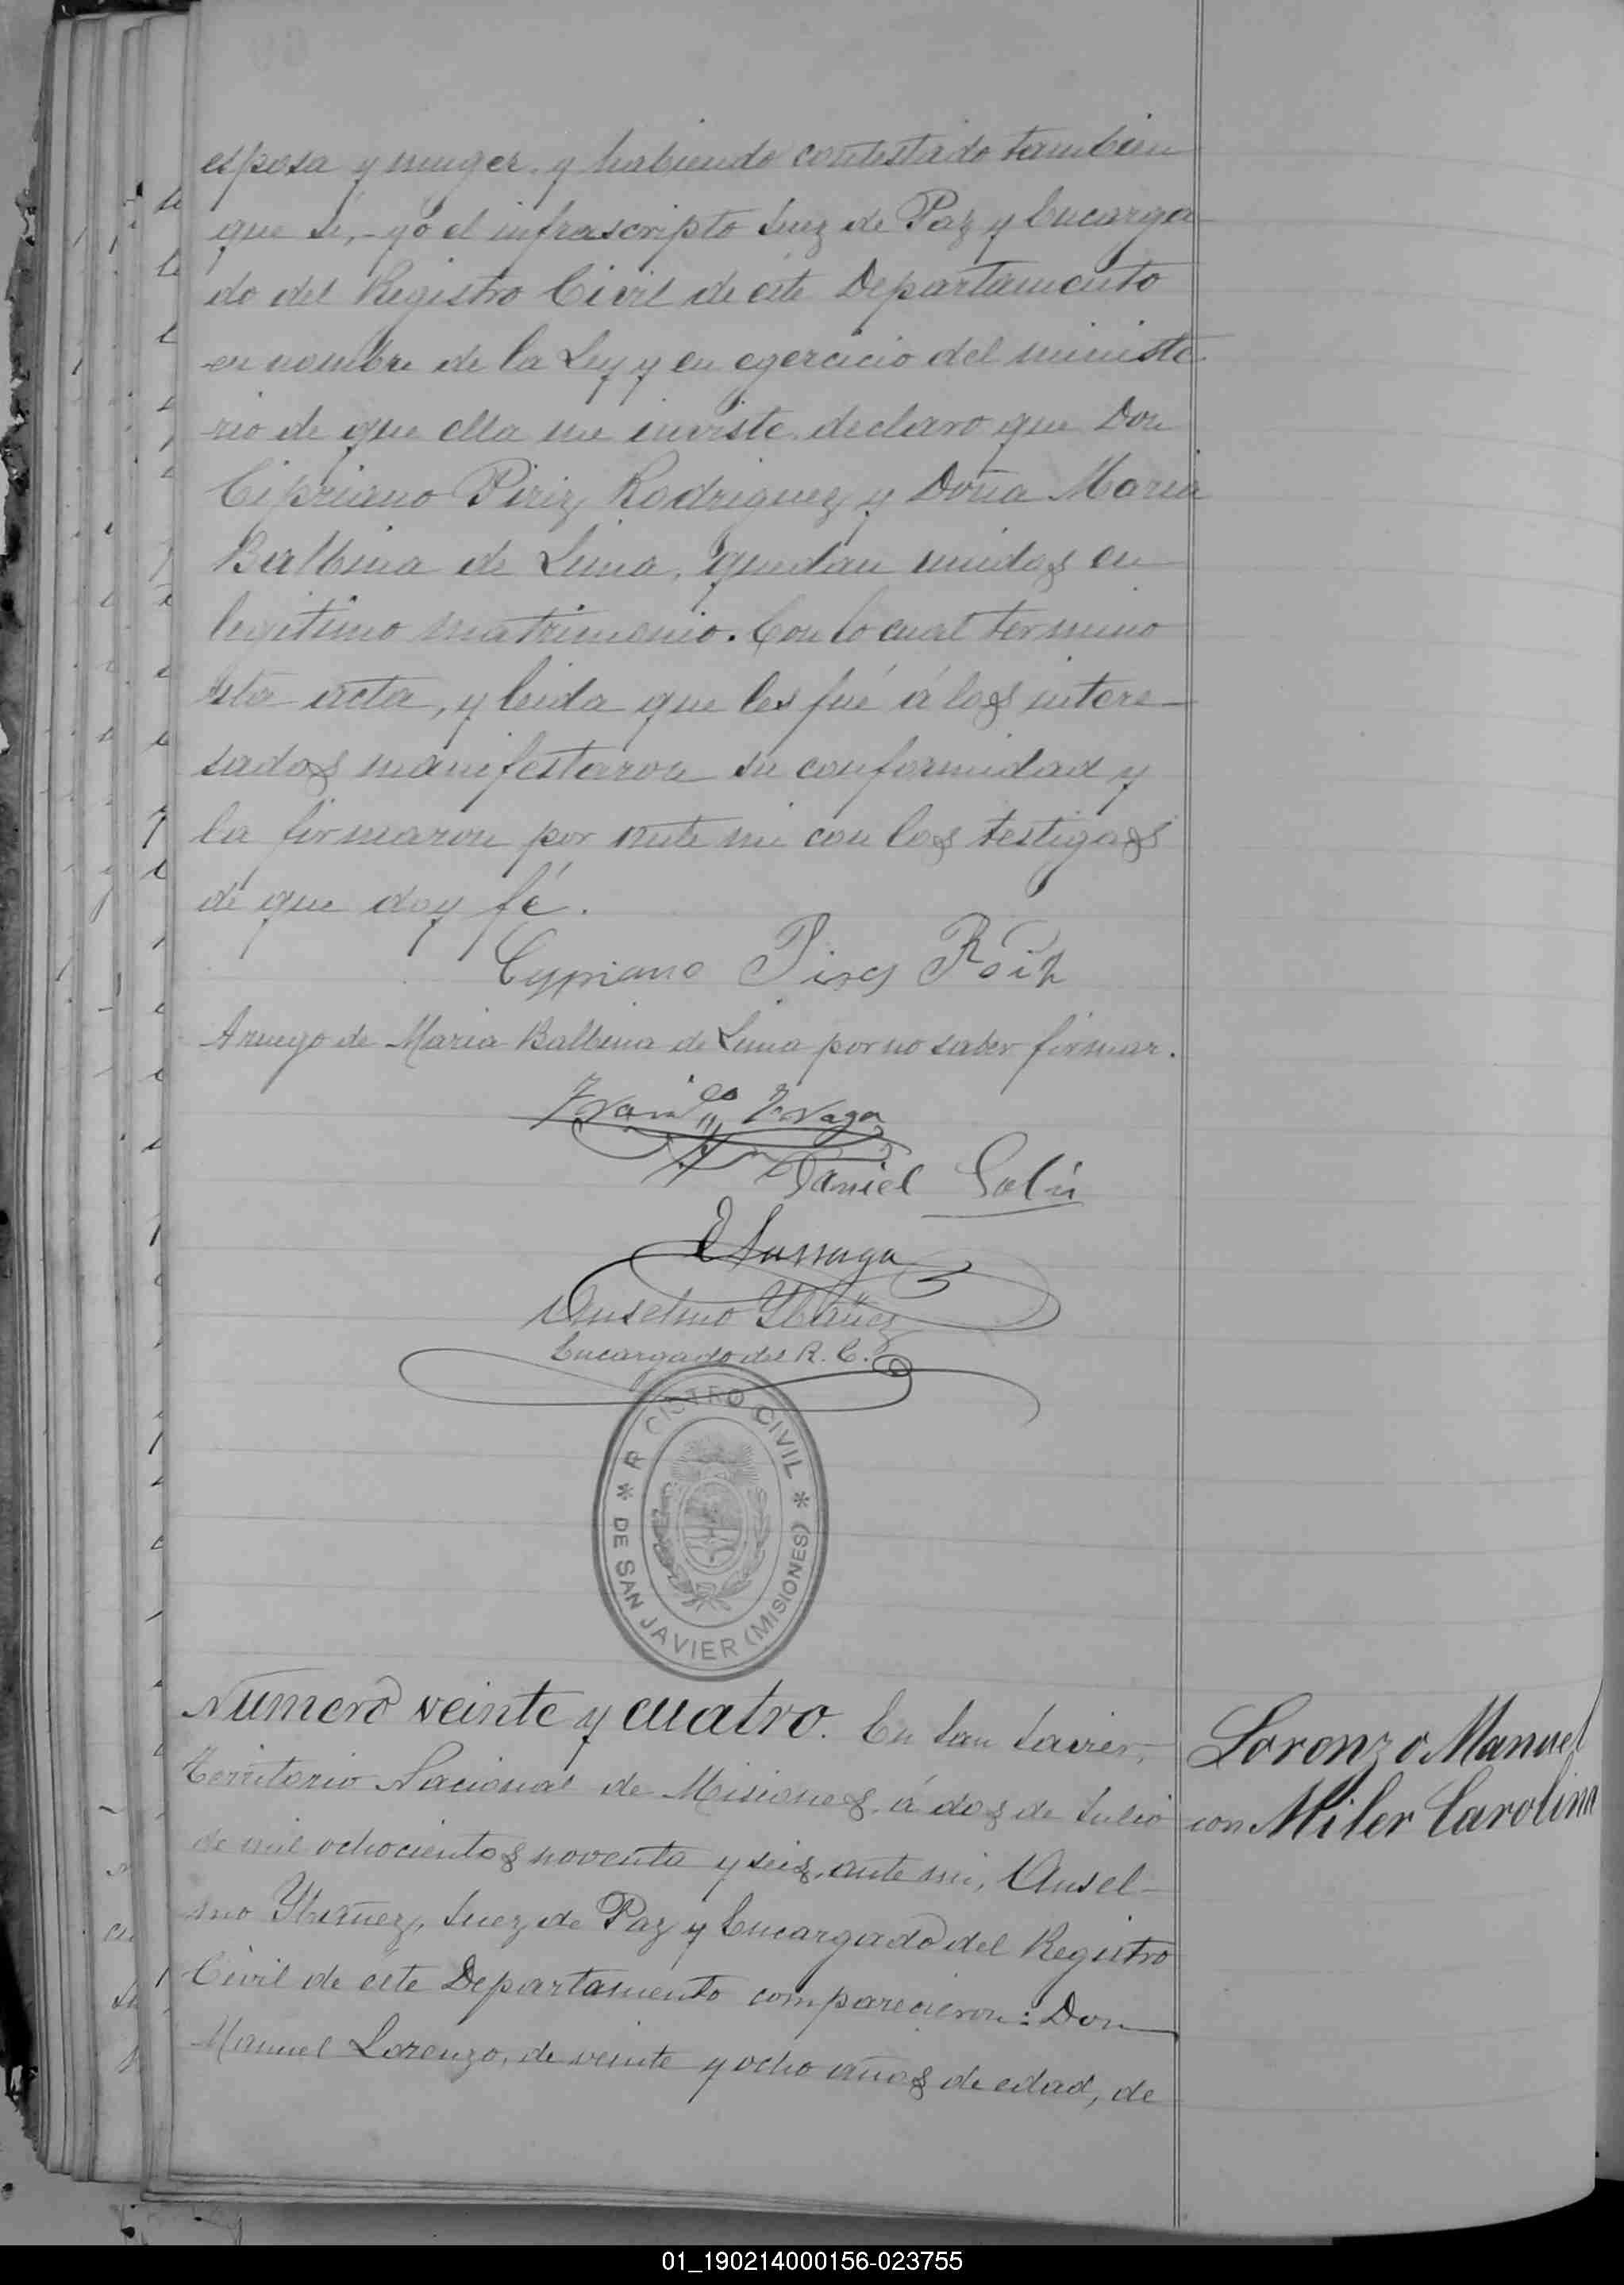 esposa y muger, y habiendo contestado tambien
que si, - yó el infrascripto Juez de Paz y Encarga
do del Registro Civil de este Departamento
en nombre de la Ley y en egercicio del ministe
rio de que ella me inviste, declaro que Don
Cipriano Piriz Rodriguez y Doña Maria
Balbina de Lima, quedan unidos en
legitimo matrimonio. Con lo cual termino
esta acta, y leida que les fué á los intere-
sados manifestaron su conformidad y
la firmaron por ante mi con los testigos
de que doy fé.
Cypriano Pires Roiz
A ruego de Maria Balbina de Lima por no saber firmar.
Fran.co Fraga
Daniel
Anselmo Ybañez
Encargado del R. C.
REGISTRO CIVIL
* DE SAN JAVIER (MISIONES) *
Numero veinte y cuatro. En San Javier,
Territorio Nacional de Misiones, á dos de Julio
de mil ochocientos noventa y seis, ante mi, Ansel-
mo Ybañez, Juez de Paz y Encargado del Registro
Civil de este Departamento comparecieron: Don
Manuel Lorenzo, de veinte y ocho años de edad, de
Lorenzo Manuel
con Miler Carolina
01_190214000156-023755